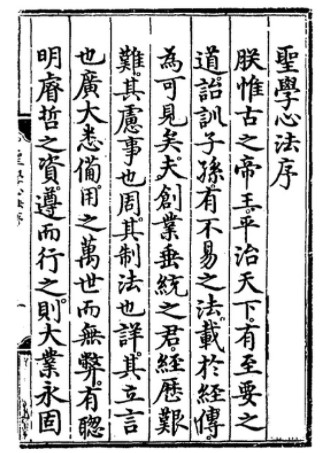 聖學心法序
朕惟古之帝王平治天下有至要之
道詒訓子孫有不易之法載於經傳
為可見矣夫創業垂統之君經歷艱
難其慮事也周其制法也詳其立言
也廣大悉備用之萬世而無弊有聰
明睿哲之資遵而行之則大業永固